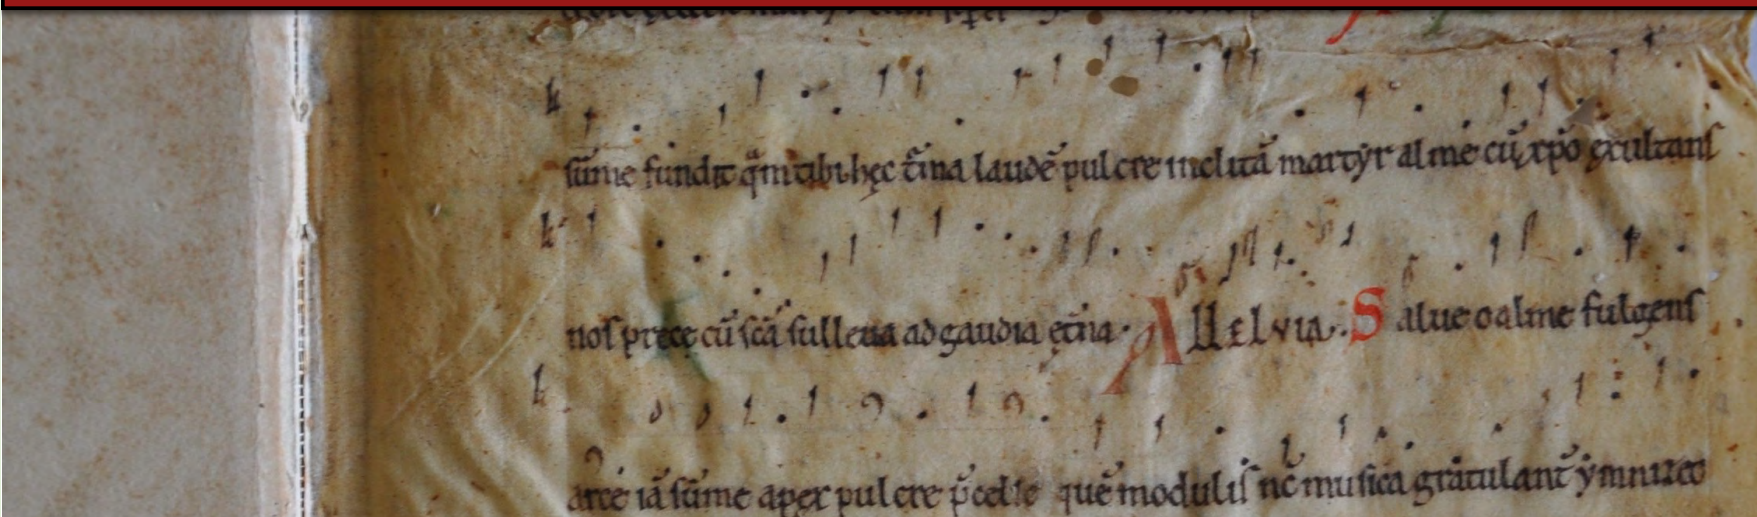 sūme fundit qm̄ tibi hęc t̄ina laudē pulcre inclitā martyr alme cū xp̄o exultans
nos prece cū scā sulleua ad gaudia et̄na. Allelvia. Salue o alme fulgens
arce iā sūme apex pulcre p̄celse quē modulis nc̄ musica gratulant̄ ymnizeo